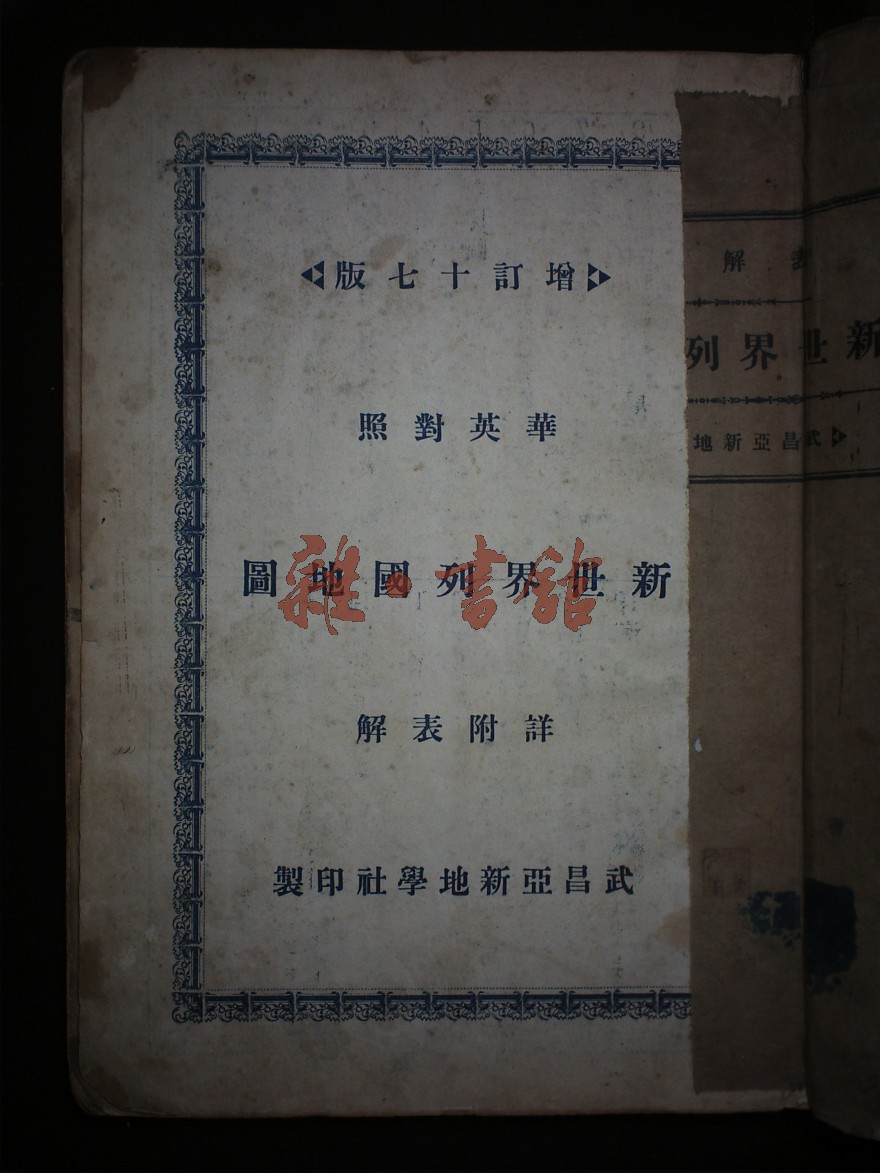 增訂十七版
華英對照
新世界列國地圖
詳附表解
武昌亞新地學社印製
雜·書館
解
新世界列
武昌亞新地